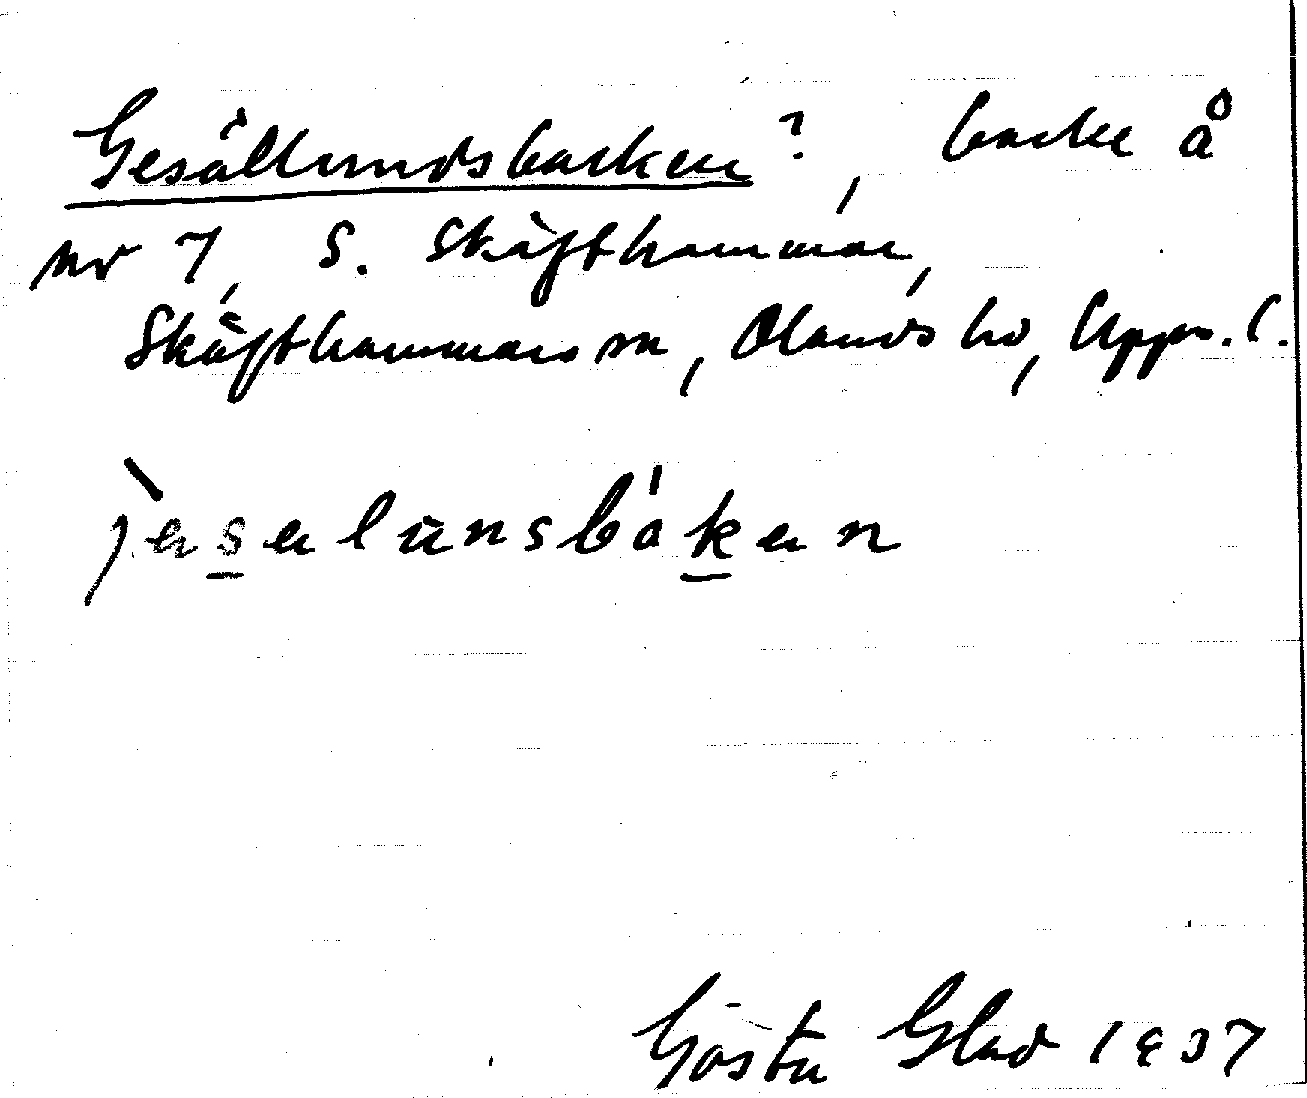 Gesällundsbacken?, backe å
nr 7, S. Skäfthammar,
Skäfthammars sn, Olands hd, Upps. l.
jeselunsbaken
Gösta Glad 1937